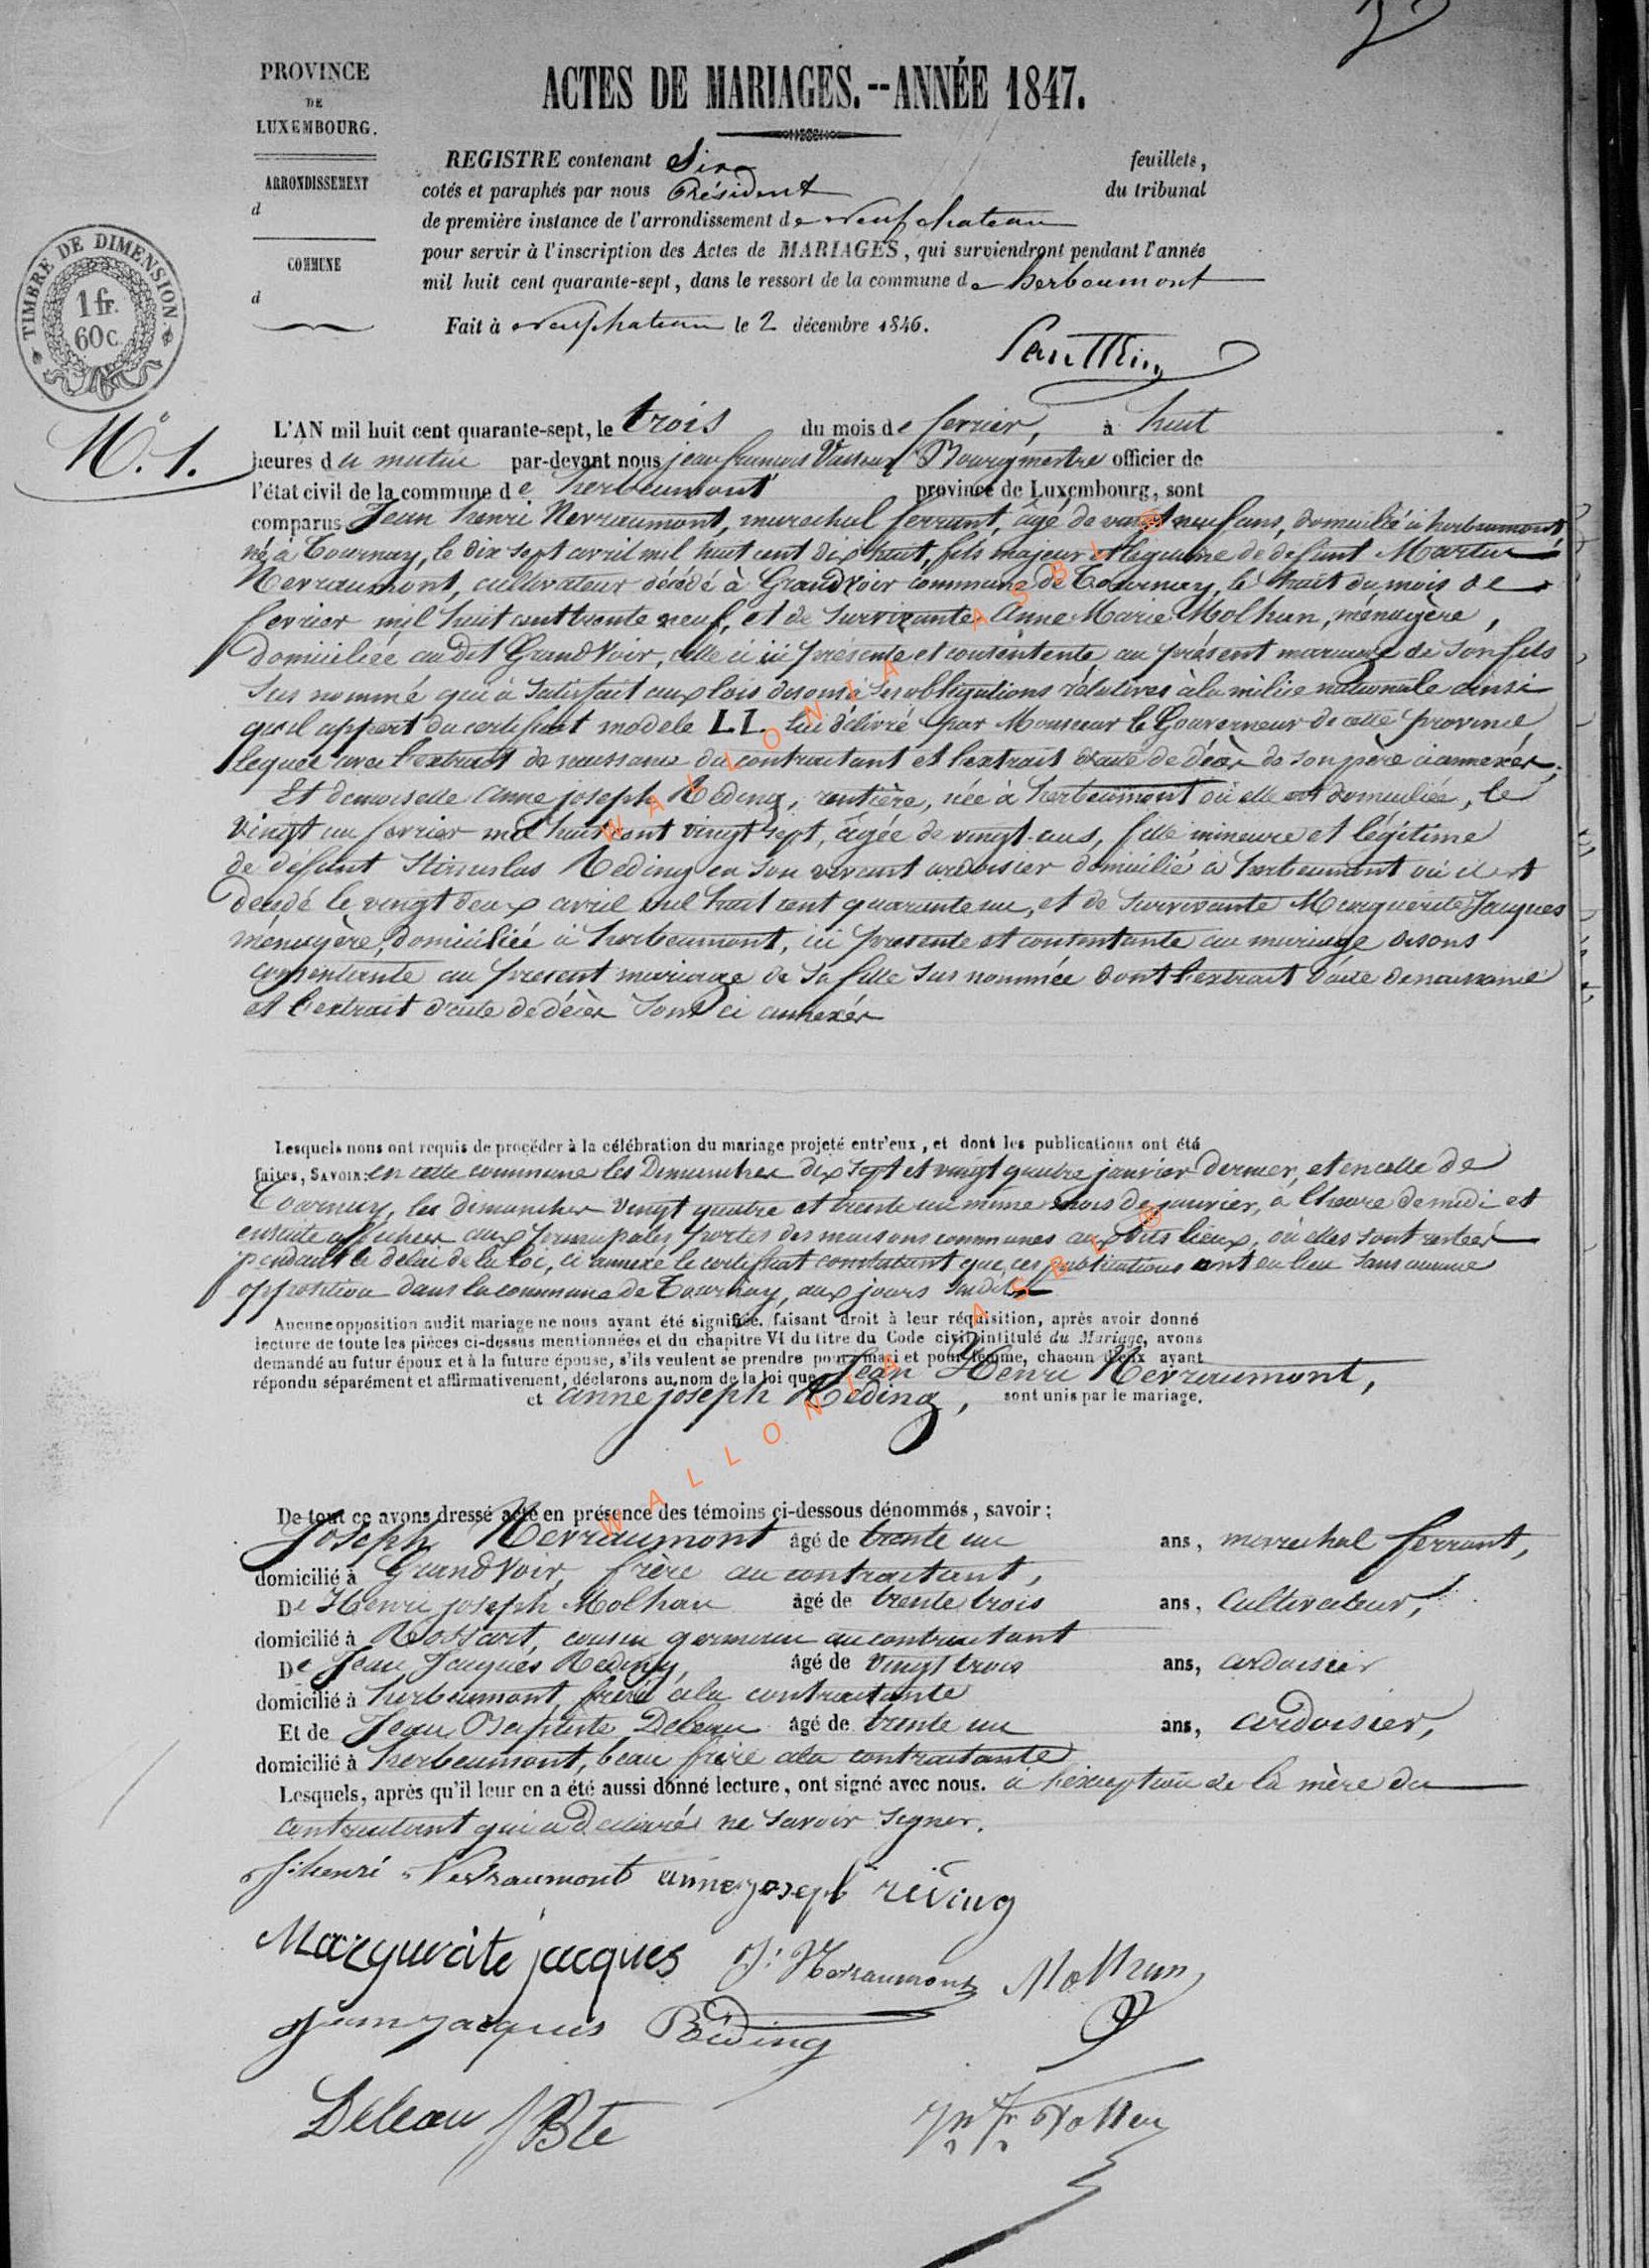 PROVINCE
DE
LUXEMBOURG.
ARRONDISSEMENT
d
COMMUNE
d
TIMBRE DE DIMENSION.
1 fr.
60 c.
ACTES DE MARIAGES.--ANNÉE 1847.
REGISTRE contenant Six feuillets,
cotés et paraphés par nous Président du tribunal
de première instance de l'arrondissement de Neufchateau
pour servir à l'inscription des Actes de MARIAGES, qui surviendront pendant l'année
mil huit cent quarante-sept, dans le ressort de la commune de herbeumont
Fait à Neufchateau le 2 décembre 1846.
N.° 1.
L'AN mil huit cent quarante-sept, le trois du mois de fevrier, à huit
heures du matin par-devant nous jean françois Bourgmestre officier de
l'état civil de la commune de herbeumont province de Luxembourg, sont
comparus Jean henri Nevraumont, marechal ferrant, âgé de vingt neuf ans, domicilié à herbeumont,
né à Tournay, le dix sept avril mil huit cent dix huit, fils majeur et legitime de defunt Martin
Nevraumont, cultivateur décédé à Grandvoir commune de Tournay, le huit du mois de
fevrier mil huit cent trente neuf, et de survivante Anne Marie Molhan, ménagère,
domiciliée au dit Grandvoir, celle ci ici présente et consentente au présent mariage de son fils
sus nommé qui à satisfait aux lois disons à ses obligations rélatives à la milice nationale ainsi
qu'il appert du certificat modele LL lui délivré par Monsieur le Gouverneur de cette province,
lequel avec l'extrait de naissance du contractant et l'extrait d'acte de décès de son père ci annexés,
Et demoiselle Anne joseph Reding, rentière, née à herbeumont où elle est domiciliée, le
vingt un fevrier mil huit cent vingt sept, âgée de vingt ans, fille mineure et légitime
de défunt Stinislas Reding en son vivant ardoisier domicilié à herbeumont où il est
decédé le vingt deux avril mil huit cent quarante un, et de survivante Marguerite Jacques
ménagère, domiciliée à herbeumont, ici presente et consentante au mariage disons
consentante au present mariage de sa fille sus nommée dont l'extrait d'acte de naissance
et l'extrait d'acte de décès sont ci annexés
Lesquels nous ont requis de procéder à la célébration du mariage projeté entr'eux, et dont les publications ont été
faites, SAVOIR: en cette commune les Dimanches dix sept et vingt quatre janvier dernier, et en celle de
Tournay, les dimanches vingt quatre et trente un même mois de janvier, à l'heure de midi et
ensuite affichées aux principales portes des maisons communes aux dits lieux, où elles sont restées
pendant le délai de la loi, ci annexé le certificat constatant que ces publications ont eu lieu sans aucune
opposition dans la commune de Tournay, aux jours susdits
Aucune opposition audit mariage ne nous ayant été signifiée, faisant droit à leur réquisition, après avoir donné
lecture de toute les pièces ci-dessus mentionnées et du chapitre VI du titre du Code civil intitulé du Mariage, avons
demandé au futur époux et à la future épouse, s'ils veulent se prendre pour mari et pour femme, chacun d'eux ayant
répondu séparément et affirmativement, déclarons au nom de la loi que Jean Henri Nevraumont,
et anne joseph Reding, sont unis par le mariage.
De tout ce avons dressé acte en présence des témoins ci-dessous dénommés, savoir:
Joseph Nevraumont âgé de trente un ans, marechal ferrant,
domicilié à Grandvoir, frère au contractant,
De Henri joseph Molhan âgé de trente trois ans, cultivateur,
domicilié à Rossart, cousin germain au contractant
De Jean Jacques Reding, âgé de vingt trois ans, ardoisier
domicilié à herbeumont, frère à la contractante
Et de Jean Baptiste Deleau âgé de trente un ans, ardoisier,
domicilié à herbeumont, beau frère à la contractante
Lesquels, après qu'il leur en a été aussi donné lecture, ont signé avec nous. à l'exception de la mère du
contractant qui a declarée ne savoir signer.
J. henri Nevraumont anne joseph réding
Marguerite jacques J. Nevraumont Molhan
jean jacques Réding
Deleau J Bte
WALLONIA ASBL ®
WALLONIA ASBL ®